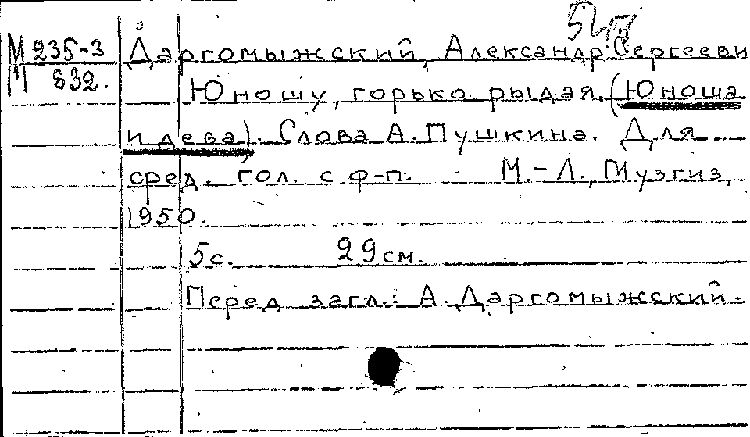 М 235-3
М 832.
Даргомыжский, Александр Сергееви
Юношу, горько рыдая. (Юноша
и дева). Слова А. Пушкина. Для
сред. гол. с ф-п. М.-Л., Музгиз,
1950.
5с. 29см.
Перед загл.: А. Даргомыжский.